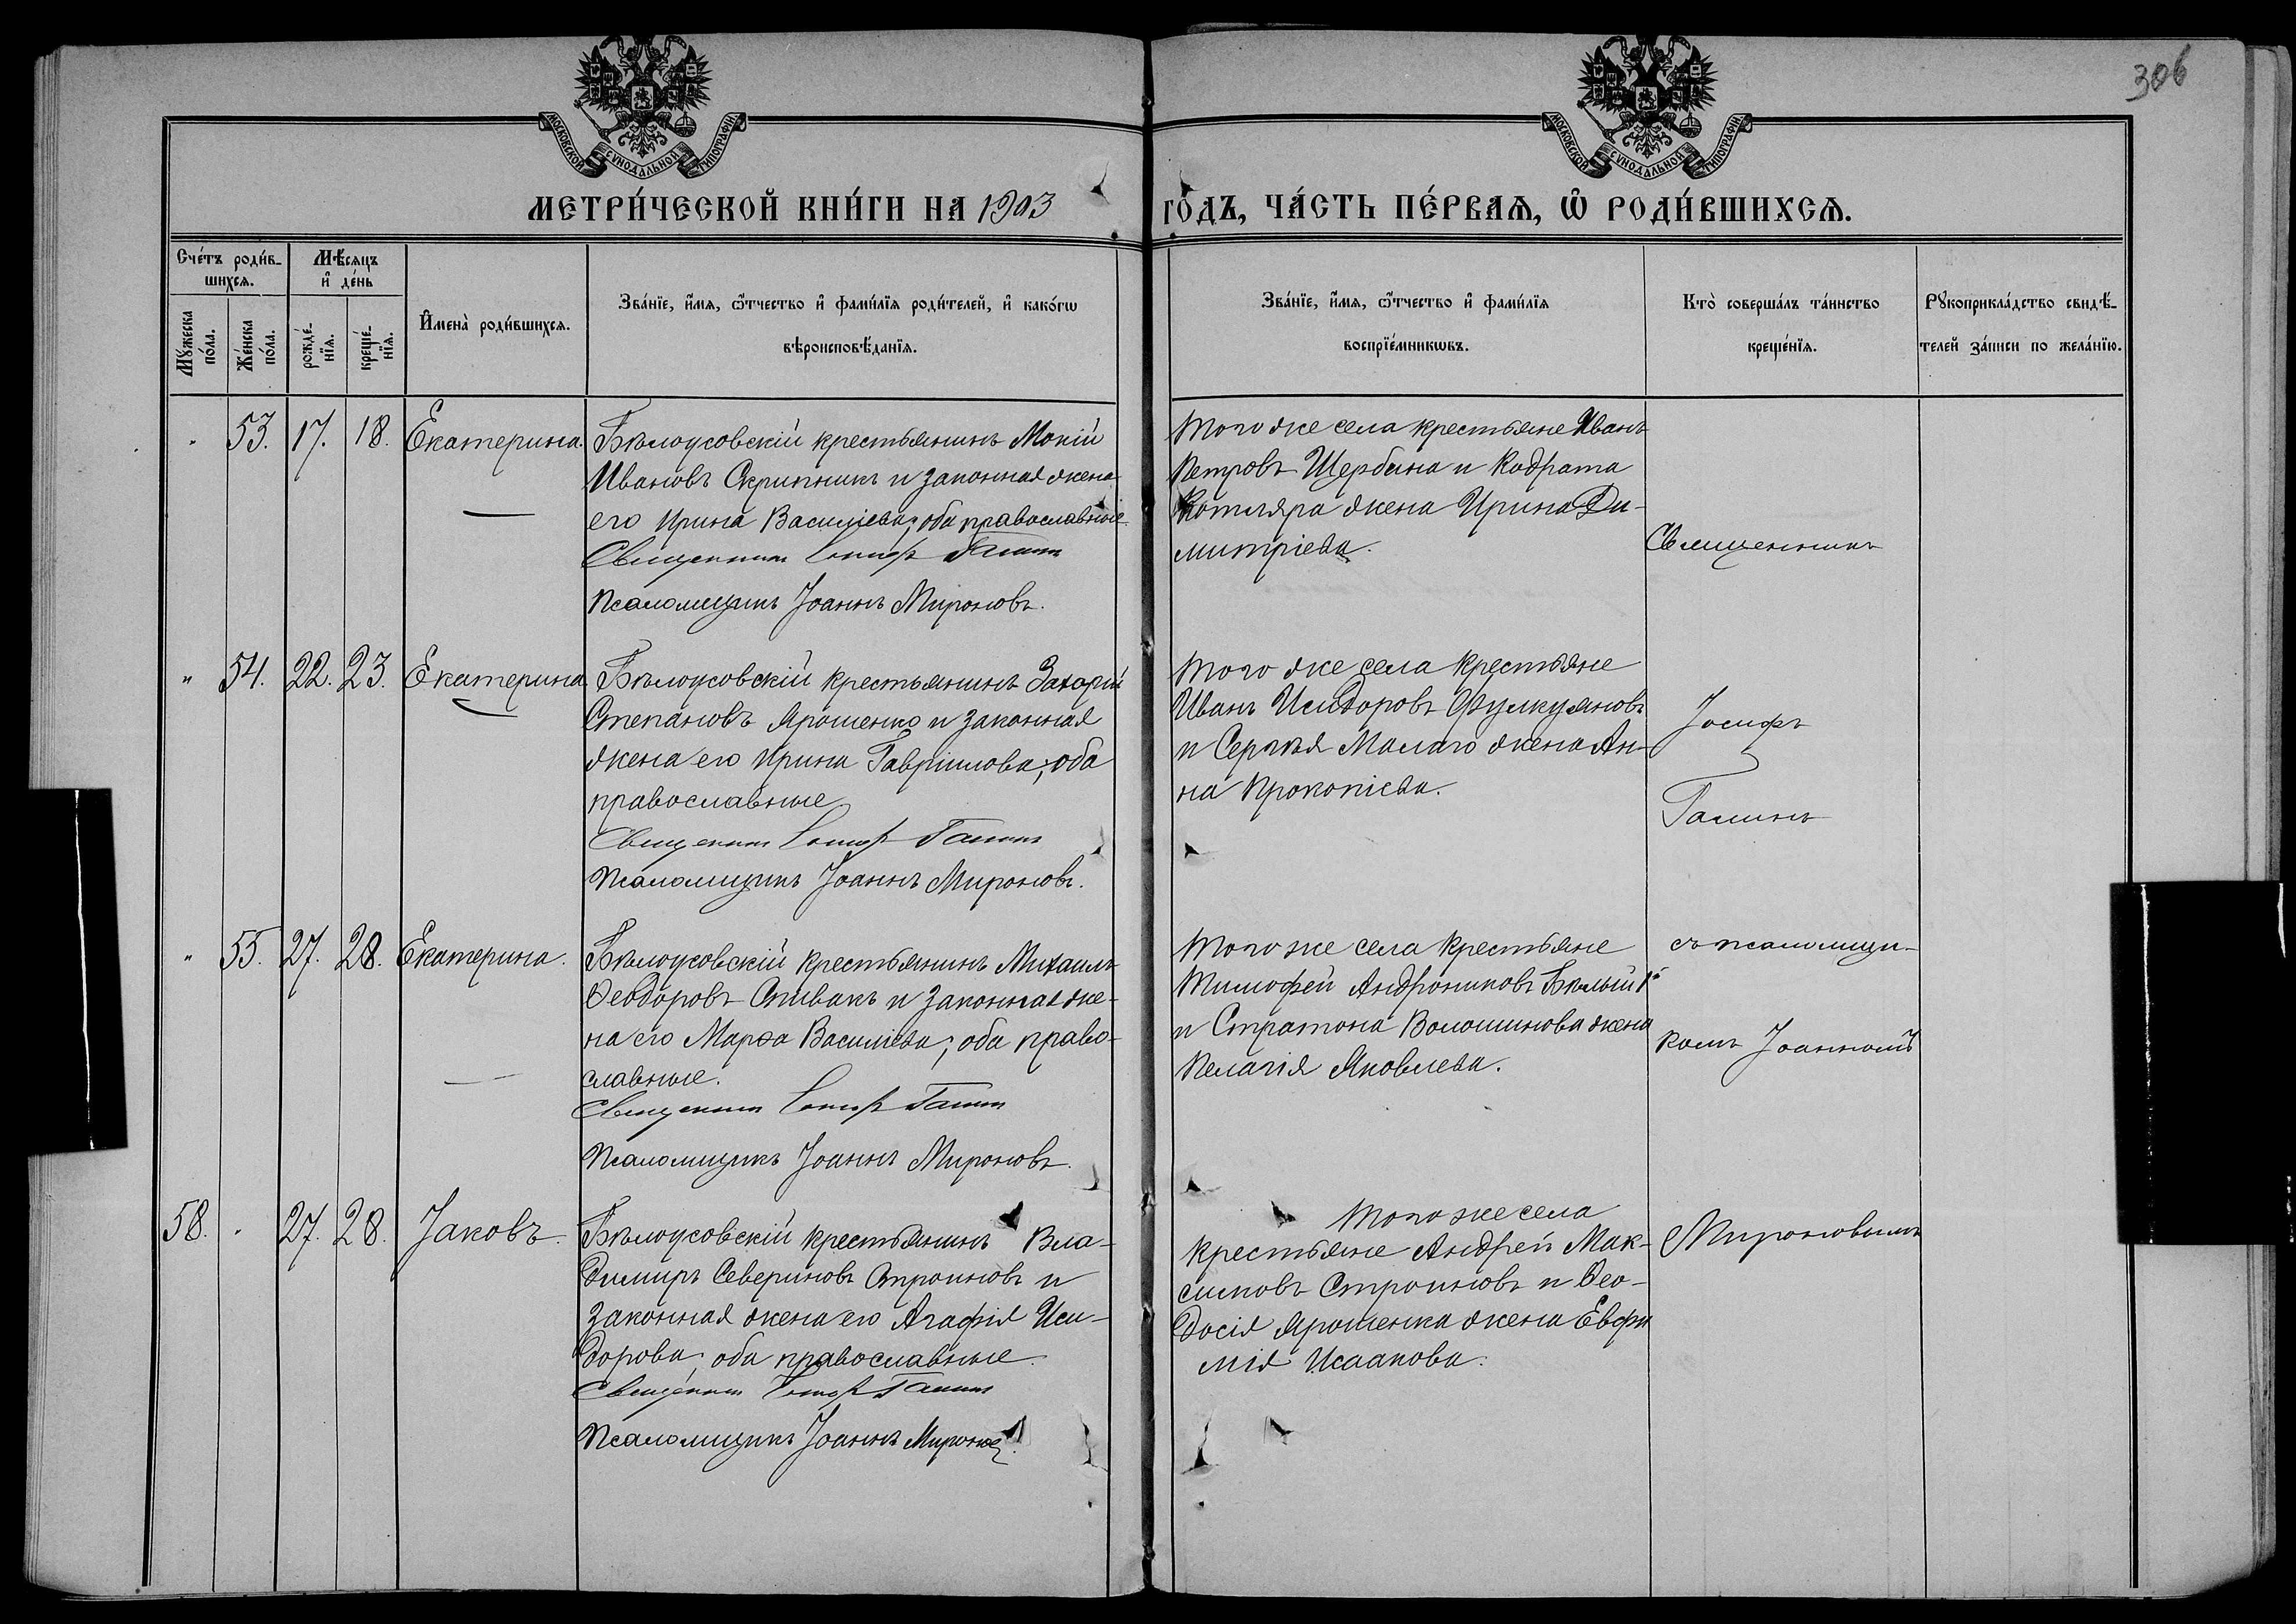 306
МОСКОВСКОЙ СѴНОДАЛЬНОЙ ТИПОГРАФІИ
МОСКОВСКОЙ СѴНОДАЛЬНОЙ ТИПОГРАФІИ
МЕТРИ́ЧЕСКОЙ КНИ́ГИ НА 1903 ГО́ДЪ, ЧА́СТЬ ПЕ́РВАѦ, Ѡ҆ РОДИ́ВШИХСѦ.
Сче́тъ роди́в-
шихсѧ.
Мꙋ́жеска по́ла.
Же́нска по́ла.
Мѣ́сѧцъ
и҆ де́нь
рожде́-
нїѧ.
креще́-
нїѧ.
И҆мена̀ роди́вшихсѧ.
Зва́нїе, и҆́мѧ, ѻ҆́тчество и҆ фами́лїѧ роди́телей, и҆ како́гѡ
вѣроисповѣ́данїѧ.
Зва́нїе, и҆́мѧ, ѻ҆́тчество и҆ фами́лїѧ
воспрїе́мникѡвъ.
Кто̀ соверша́лъ та́инство
креще́нїѧ.
Рꙋкоприкла́дство свидѣ́-
телей за́писи по жела́нїю.
" 53. 17. 18. Екатерина.
Бѣлоусовскій крестьянинъ Мокій
Ивановъ Скрипникъ и законная жена
его Ирина Василіева; оба православные
Священникъ Іосифъ Галинъ
Псаломщикъ Іоаннъ Мироновъ.
Того же села крестьяне Иванъ
Петровъ Щербина и Кодрата
Котляра жена Ирина Ди-
митріева.
Священникъ
" 54. 22. 23. Екатерина
Бѣлоусовскій крестьянинъ Захарій
Степановъ Ярошенко и законная
жена его Ирина Гавріилова; оба
православные
Священникъ Іосифъ Галинъ
Псаломщикъ Іоаннъ Мироновъ.
Того же села крестьяне
Иванъ Исидоровъ
и Сергѣя Малаго жена Ан-
на Прокопіева.
Іосифъ
Галинъ
" 55. 27. 28. Екатерина.
Бѣлоусовскій крестьянинъ Михаилъ
Ѳеодоровъ Спивакъ и законная же-
на его Марѳа Василіева; оба право-
славные.
Священникъ Іосифъ Галинъ
Псаломщикъ Іоаннъ Мироновъ.
Того же села крестьяне
Тимофей Андрониковъ Бѣлый
и Стратона Волошинова жена
Пелагія Яковлева.
съ псаломщи-
комъ Іоанномъ
58. " 27. 28. Іаковъ.
Бѣлоусовскій крестьянинъ Вла-
димиръ Севериновъ Строиновъ и
законная жена его Агафія Иси-
дорова; оба православные.
Священникъ Іосифъ Галинъ
Псаломщикъ Іоаннъ Мироновъ.
Того же села
крестьяне Андрей Мак-
симовъ Строиновъ и Ѳео-
досія Ярошенка жена Евфи
мія Исаакова.
Мироновымъ